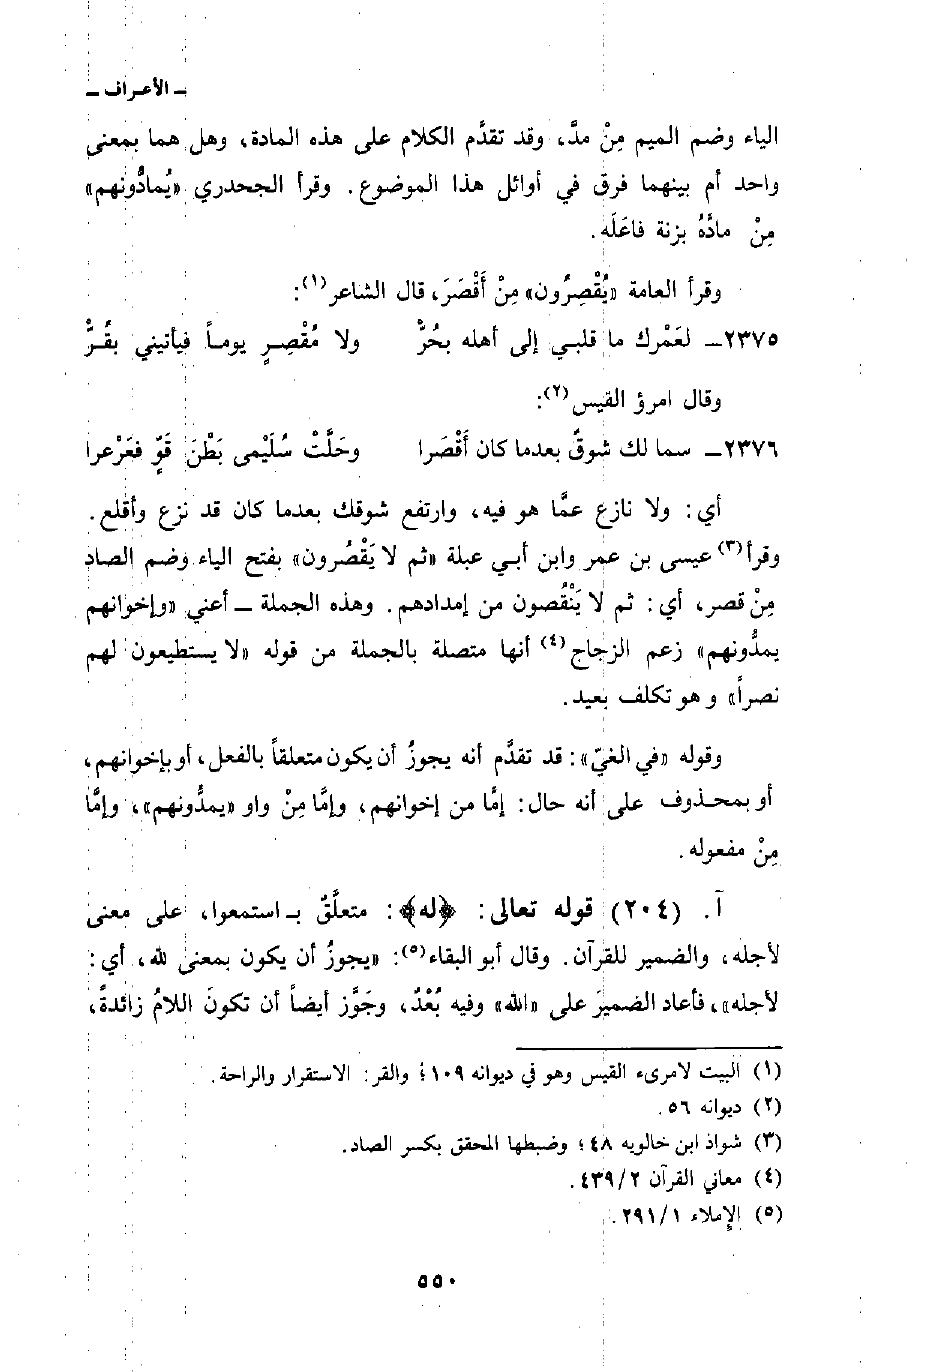 ـ الأعراف ـ
الياء وضم الميم مِنْ مدَّ، وقد تقدَّم الكلام على هذه المادة، وهل هما بمعنى
واحد أم بينهما فرق في أوائل هذا الموضوع. وقرأ الجحدري «يُمادُّونهم»
مِنْ مادَّهُ بزنة فاعَلَه.
وقرأ العامة «يُقْصِرُون» مِنْ أَقْصَرَ، قال الشاعر(١):
٢٣٧٥ـ لعَمْرك ما قلبي إلى أهله بحُرّْ ولا مُقْصِرٍ يوماً فيأتيني بقُرّْ
وقال امرؤ القيس(٢):
٢٣٧٦ـ سما لك شوقٌ بعدما كان أَقْصَرا وحَلَّتْ سُلَيْمى بَطْنَ قَوٍّ فعَرْعرا
أي: ولا نازع عمَّا هو فيه، وارتفع شوقك بعدما كان قد نزع وأقلع.
وقرأ(٣) عيسى بن عمر وابن أبي عبلة «ثم لا يَقْصُرون» بفتح الياء وضم الصاد
مِنْ قصر، أي: ثم لا يَنْقُصون من إمدادهم. وهذه الجملة ـ أعني «وإخوانهم
يمدُّونهم» زعم الزجاج(٤) أنها متصلة بالجملة من قوله «لا يستطيعون لهم
نصراً» وهو تكلف بعيد.
وقوله «في الغيّ»: قد تقدَّم أنه يجوزُ أن يكون متعلقاً بالفعل، أو بإخوانهم،
أو بمحذوف على أنه حال: إمَّا من إخوانهم، وإمَّا مِنْ واو «يمدُّونهم»، وإمَّا
مِنْ مفعوله.
آ. (٢٠٤) قوله تعالى: ﴿له﴾: متعلَّقٌ بـ استمعوا، على معنى
لأجله، والضمير للقرآن. وقال أبو البقاء(٥): «يجوزُ أن يكون بمعنى لله، أي:
لأجله»، فأعاد الضميرَ على «الله» وفيه بُعْدٌ، وجَوَّز أيضاً أن تكونَ اللامُ زائدةً،
(١) البيت لامرىء القيس وهو في ديوانه ١٠٩؛ والقر: الاستقرار والراحة.
(٢) ديوانه ٥٦.
(٣) شواذ ابن خالويه ٤٨؛ وضبطها المحقق بكسر الصاد.
(٤) معاني القرآن ٤٣٩/٢.
(٥) الإملاء ٢٩١/١.
٥٥٠